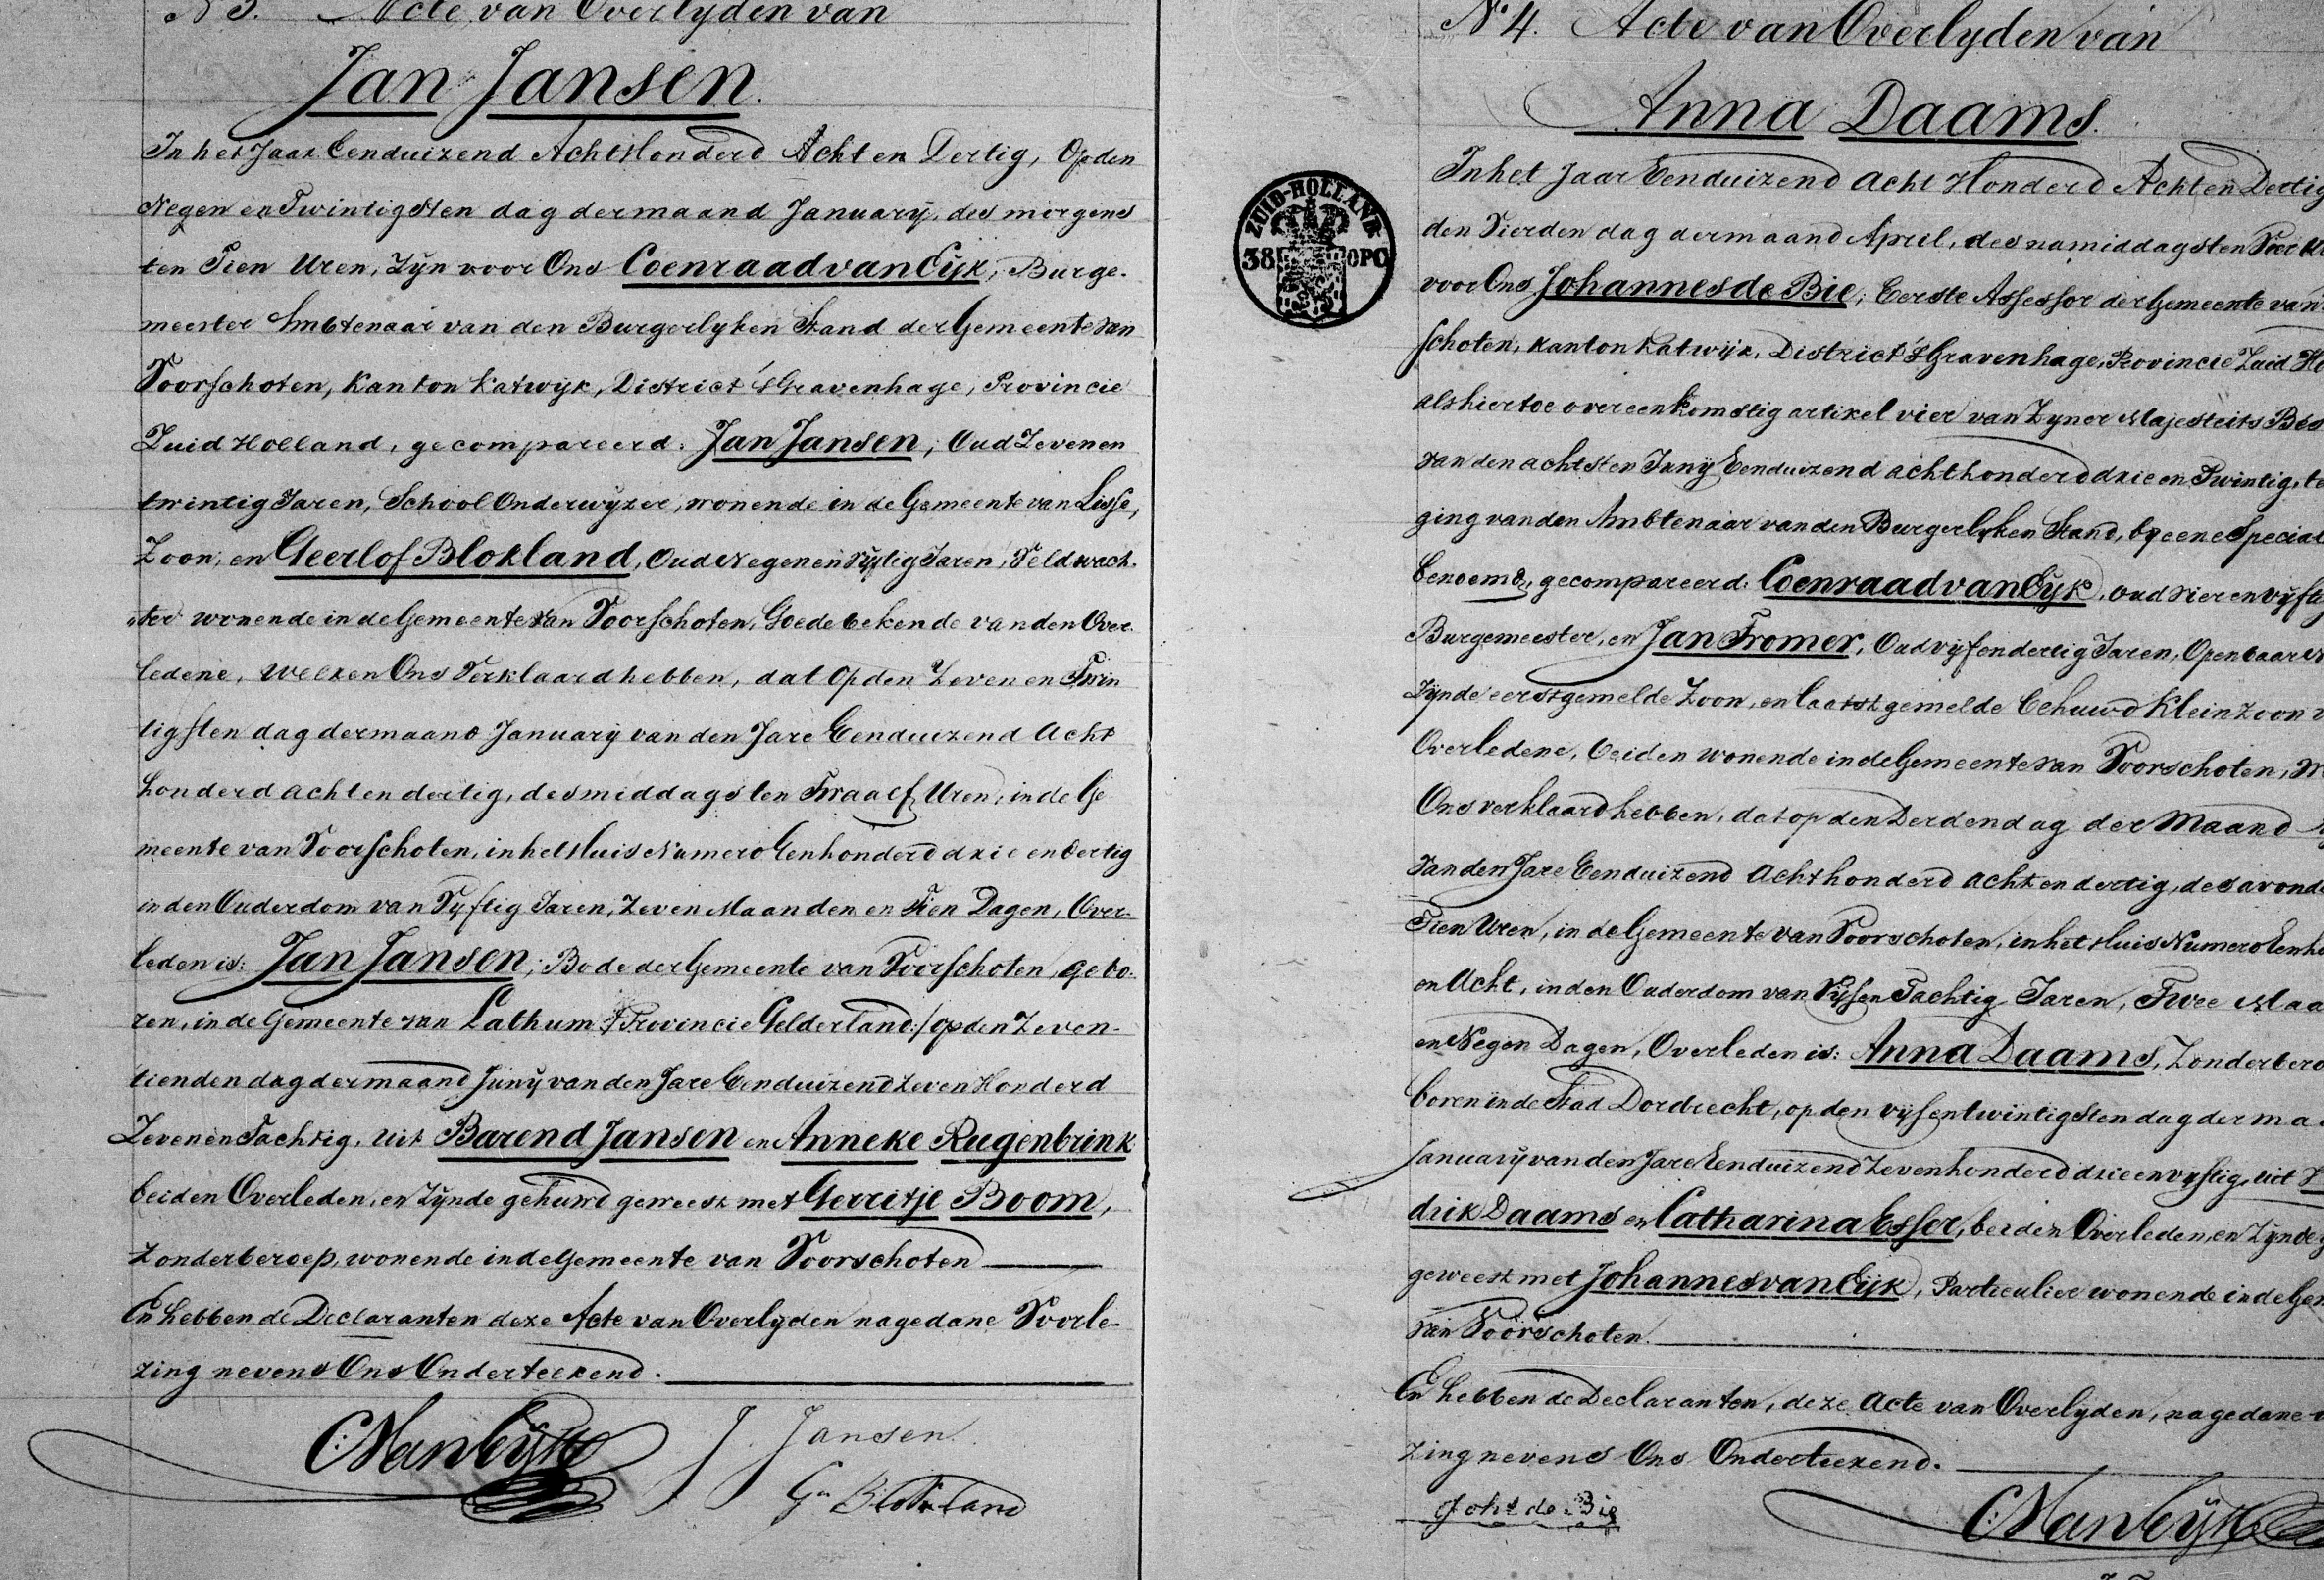 N 3. Acte van Overlyden van
Jan Jansen.
In het Jaar Eenduizend Acht Honderd Acht en Dertig, Op den
Negen en Twintigsten dag der maand January, des morgens
ten Tien Uren, Zyn voor Ons Coenraad van Eyk, Burge-
meester Ambtenaar van den Burgerlyken Stand der Gemeente van
Voorschoten, Kanton Katwyk, District 's Gravenhage, Provincie
Zuid Holland, gecompareerd: Jan Jansen, Oud Zeven en
twintig Jaren, School Onderwyzer, wonende in de Gemeente van Lisse,
Zoon, en Geerlof Blokland, Oud Negen en Vyftig Jaren, Veldwach-
„ter wonende in de Gemeente van Voorschoten, Goede bekende van den Over-
ledene, welken Ons Verklaard hebben, dat Op den Zeven en Twin
tigsten dag der maand January van den Jare Eenduizend Acht
honderd acht en dertig, des middags ten Twaalf Uren, in de Ge
meente van Voorschoten, in het Huis Numero Eenhonderd drie en dertig
in den Ouderdom van Vyftig Jaren, Zeven Maanden en Tien Dagen, Over-
leden is: Jan Jansen, Bode der Gemeente van Voorschoten, gebo-
ren, in de Gemeente van Lathum /: Provincie Gelderland:/ op den Zeven-
tienden dag der maand Juny van den Jare Eenduizend Zeven Honderd
Zeven en Tachtig, uit Barend Jansen en Anneke Rugenbrink
beiden Overleden, en Zynde gehuwd geweest met Gerritje Boom,
Zonder beroep, wonende in de Gemeente van Voorschoten
En hebben de Declaranten deze Acte van Overlyden na gedane Voorle-
zing nevens Ons Onderteekend.
C. Van Eyk
J. Jansen.
Gn Blokland
ZUID-HOLLAND
38 OPC
N° 4. Acte van Overlyden van
Anna Daams.
In het Jaar Eenduizend Acht Honderd Acht en Dertig
den Vierden dag der maand April, des namiddags ten Vier
voor Ons Johannes de Bie, Eerste Assessor der Gemeente van
schoten, Kanton Katwyk, District 's Gravenhage, Provincie Zuid Ho
als hiertoe overeenkomstig artikel vier van Zyner Majesteits Bes
van den achtsten Juny Eenduizend acht honderd drie en Twintig, te
ging van den Ambtenaar van den Burgerlyken Stand, by eene Special
benoemd, gecompareerd: Coenraad van Eyk, oud vier en vyft
Burgemeester, en Jan Tromer, Oud vyf en dertig Jaren, Openbaar
Zynde eerstgemelde Zoon, en laatst gemelde behuwd Kleinzoon v
Overledene, beiden wonende in de Gemeente van Voorschoten, w
Ons verklaard hebben, dat op den Derden dag der Maand
van den Jare Eenduizend Acht honderd acht en dertig, des avonds
Tien Uren, in de Gemeente van Voorschoten, in het Huis Numero Eenho
en Acht, in den Ouderdom van Vyf en Tachtig Jaren, Twee Maa
en Negen Dagen, Overleden is: Anna Daams, Zonder bero
boren in de Stad Dordrecht, op den vyf en twintigsten dag der ma
January van den Jare Eenduizend Zevenhonderd drie en vyftig, uit
drik Daams en Catharina Esser, beiden Overleden, en Zynde g
geweest met Johannes van Eyk, Particulier wonende in de Gem
van Voorschoten.
En hebben de Declaranten, deze Acte van Overlyden, na gedane v
zing nevens Ons Onderteekend.
Johs de Bie
C. Van Eyk